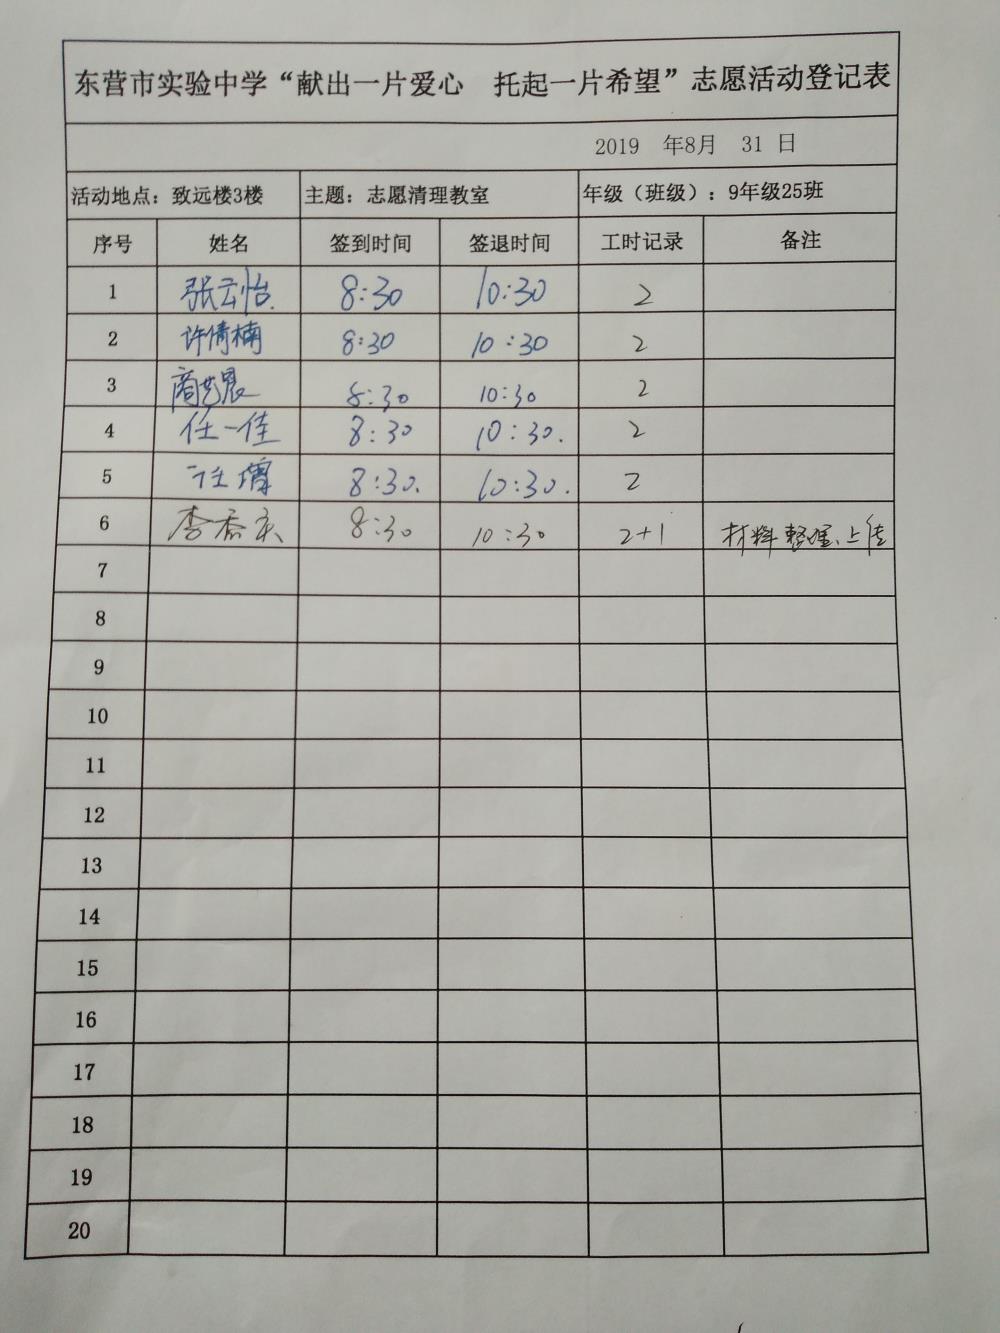 东营市实验中学“献出一片爱心 托起一片希望”志愿活动登记表
2019 年8月 31 日
活动地点：致远楼3楼 主题：志愿清理教室 年级（班级）：9年级25班
序号 姓名 签到时间 签退时间 工时记录 备注
1 张云怡 8:30 10:30 2
2 许倩楠 8:30 10:30 2
3 商艺晨 8:30 10:30 2
4 任一佳 8:30 10:30. 2
5 8:30. 10:30. 2
6 8:30 10:30 2+1 材料整理、上传
7
8
9
10
11
12
13
14
15
16
17
18
19
20